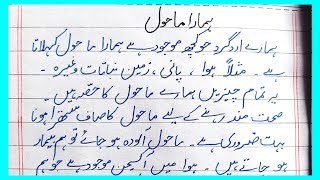 ہمارا ماحول
ہمارے اردگرد جو کچھ موجود ہے ہمارا ماحول کہلاتا
ہے ۔ مثلاً ہوا ، پانی ، زمین نباتات وغیرہ ۔
یہ تمام چیزیں ہمارے ماحول کا حصّہ ہیں ۔
صحت مند رہنے کے لیے ماحول کا صاف ستھرا ہونا
بہت ضروری ہے ۔ ماحول آلودہ ہو جائے تو ہم بیمار
ہو جاتے ہیں ۔ ہوا میں آکسیجن موجود ہے جو ہم